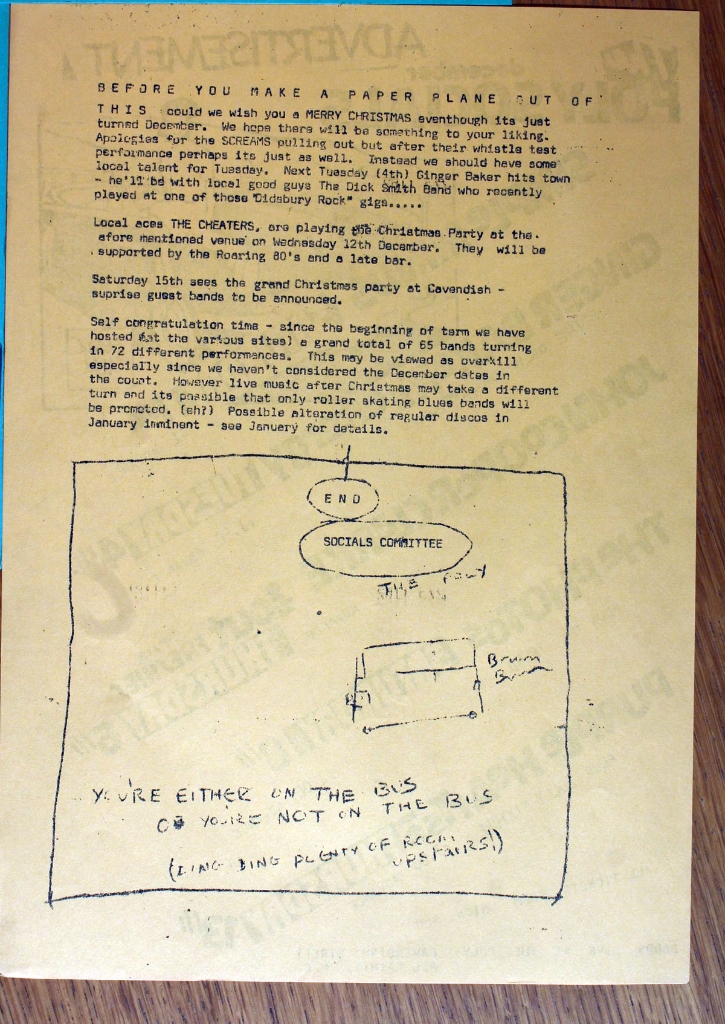 BEFORE YOU MAKE A PAPER PLANE OUT OF
THIS could we wish you a MERRY CHRISTMAS eventhough its just
turned December. We hope there will be something to your liking.
Apologies for the SCREAMS pulling out but after their whistle test
performance perhaps its just as well. Instead we should have some
local talent for Tuesday. Next Tuesday (4th) Ginger Baker hits town
- he'll be with local good guys The Dick Smith Band who recently
played at one of those "Didsbury Rock" gigs.....
Local aces THE CHEATERS, are playing the Christmas Party at the
afore mentioned venue on Wednesday 12th December. They will be
supported by the Roaring 80's and a late bar.
Saturday 15th sees the grand Christmas party at Cavendish -
suprise guest bands to be announced.
Self congratulation time - since the beginning of term we have
hosted (at the various sites) a grand total of 65 bands turning
in 72 different performances. This may be viewed as overkill
especially since we haven't considered the December dates in
the count. However live music after Christmas may take a different
turn and its possible that only roller skating blues bands will
be promoted. (eh?) Possible alteration of regular discos in
January imminent - see January for details.
END
SOCIALS COMMITTEE
THE POLY
Brum
YOU'RE EITHER ON THE BUS
OR YOU'RE NOT ON THE BUS
(DING DING PLENTY OF ROOM
UPSTAIRS!)